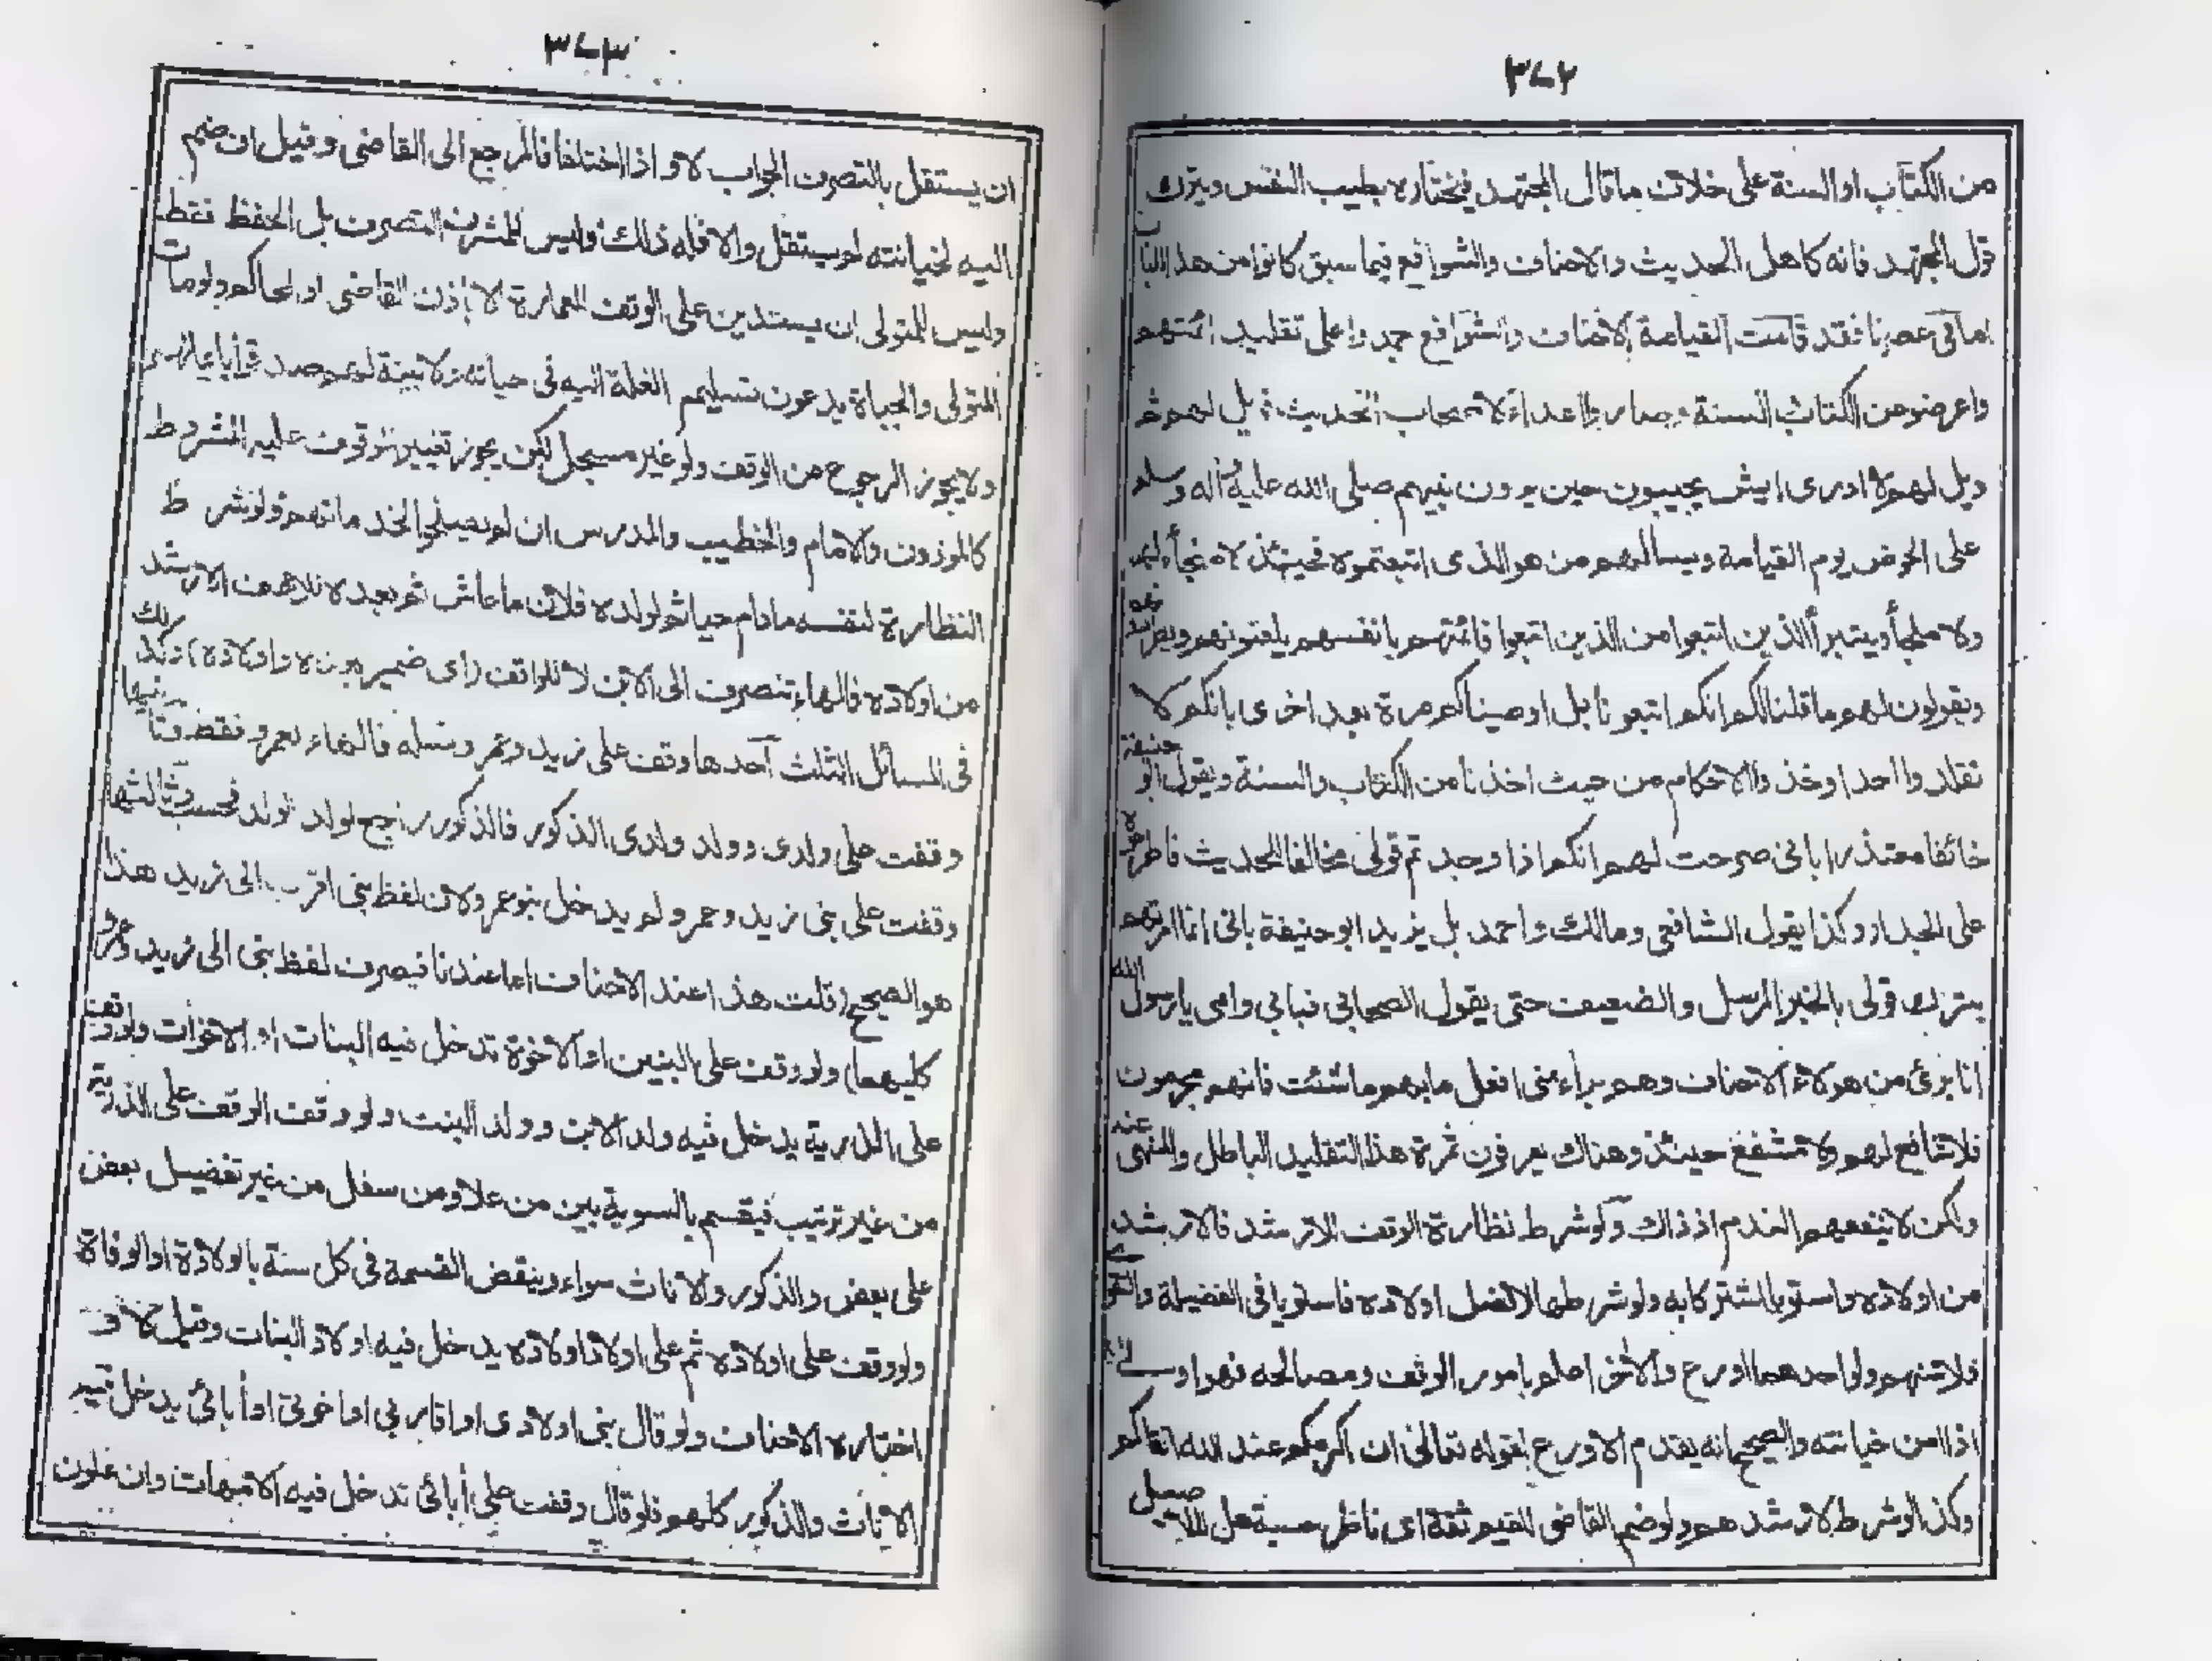 ٣٧٢
من الكتاب او السنة على خلاف ما قال المجتهد فيختاره بطيب النفس ويترك
قول المجتهد فانه كاهل الحديث والاحناف والشوافع فيما سبق كانوا من هذا الباب
اما فى عصرنا فقد قامت القيامة الاحناف والشوافع جمدوا على تقليد ائمتهم
واعرضوا عن الكتاب السنة وصاروا اعداء لاصحاب الحديث فويل لهم ثم
ويل لهم لا ادرى ايش يجيبون حين يرون نبيهم صلى الله عليه وآله وسلم
على الحوض يوم القيامة ويسالهم من هو الذى اتبعتموه فحينئذ لا منجأ لهم
ولا ملجأ ويتبرأ الذين اتبعوا من الذين اتبعوا فائمتهم بانفسهم يلعنونهم
ويقولون لهم ما قلنا لكم انكم اتبعونا بل اوصيناكم مرة بعد اخرى بانكم لا
تقلدوا احدا وخذوا الاحكام من حيث اخذنا من الكتاب والسنة ويقول ابو حنيفة
خائفا معتذرا بانى صرحت لهم انكم اذا وجدتم قولى مخالفا للحديث فاطرحوه
على الجدار وكذا يقول الشافعى ومالك واحمد بل يزيد ابو حنيفة بانى انا امرتهم
بترك قولى بالخبر المرسل والضعيف حتى يقول الصحابى فبابي وامى يا رسول الله
انا برئ من هولاء الاحناف وهم براء منى افعل ما بهم ما شئت فانهم مجرمون
فلا شافع لهم ولا مشفع حينئذ وهناك يعرفون ثمرة هذا التقليد الباطل والمنهى عنه
ولكن لا ينفعهم الندم اذ ذاك ولو شرط نظارة الوقف للارشد فالارشد
من اولاده واستويا اشتركا به ولو شرطها لافضل اولاده فاستويا فى الفضيلة والتقوى
فلاسنهم ولو احدهما اورع والآخر اعلم بامور الوقف ومصالحه فهو اولى
اذا امن خيانته والصحيح انه يقدم الاورع لقوله تعالى ان اكرمكم عند الله اتقاكم
وكذا لو شرط لارشدهم ولو ضم القاضى للقيم ثقة اى ناظر حسبة هل للاصيل
٣٧٣
ان يستقل بالتصرف الجواب لا واذا اختلفا فالمرجع الى القاضى وقيل ان ضم
اليه لخيانته لم يستقل والا فله ذلك وليس للمشرف التصرف بل الحفظ فقط
وليس للمتولى ان يستدين على الوقف للعمارة الا باذن القاضى او الحاكم ولو مات
المتولى والجباة يدعون تسليم الغلة اليه فى حياته ولا بينة لهم صدقوا بايمانهم
ولا يجوز الرجوع عن الوقف ولو غير مسجل لكن يجوز تغيير الموقوف عليه المشروط
كالموذن والامام والخطيب والمدرس ان لم يصلحوا لخدماتهم ولو شرط
النظارة لنفسه مادام حيا ثم لولده فلان ما عاش ثم بعده للاعف الارشد
من اولاده فالهاء تنصرف الى الابن لا للواقف (اى ضمير بعده واولاده) وكذلك
فى المسائل الثلث احدها وقف على زيد وعمر ونسله فالهاء لعمرو فقط وثانيها
وقفت على ولدى وولد ولدى الذكور فالذكور راجع لولد الولد فحسب وثالثها
وقفت على بنى زيد وعمرو لم يدخل بنو عمرو لان لفظ بنى اقرب الى زيد هذا
هو الصحيح (قلت هذا عند الاحناف اما عندنا فيصرف لفظ بنى الى زيد وعمرو
كليهما) ولو وقف على البنين او الاخوة تدخل فيه البنات او الاخوات ولو وقف
على الذرية يدخل فيه ولد الابن وولد البنت ولو وقف الوقف على الذرية
من غير ترتيب فيقسم بالسوية بين من علا ومن سفل من غير تفضيل بعض
على بعض والذكور والاناث سواء وينقض القسمة فى كل سنة بالولادة او الوفاة
ولو وقف على اولاده ثم على اولاد اولاده يدخل فيه اولاد البنات وقيل لا و
اختاره الاحناف ولو قال بنى اولادى او اقاربى او اخوتى او أبائى يدخل فيه
الاناث والذكور كلهم فلو قال وقفت على أبائى تدخل فيه الامهات وان علون